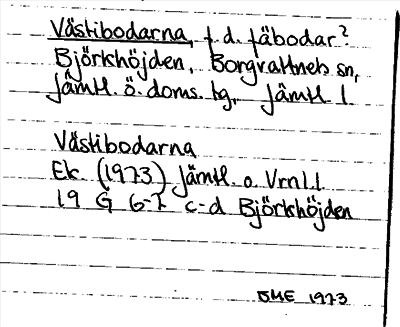 Västibodarna, f.d. fäbodar?
Björkhöjden, Borgvattnets sn,
Jämtl. ö. doms. tg, Jämtl l.
Västibodarna
Ek. (1973) Jämtl. o. Vrnl l
19 G 6-7 c-d Björkhöjden
OME 1973